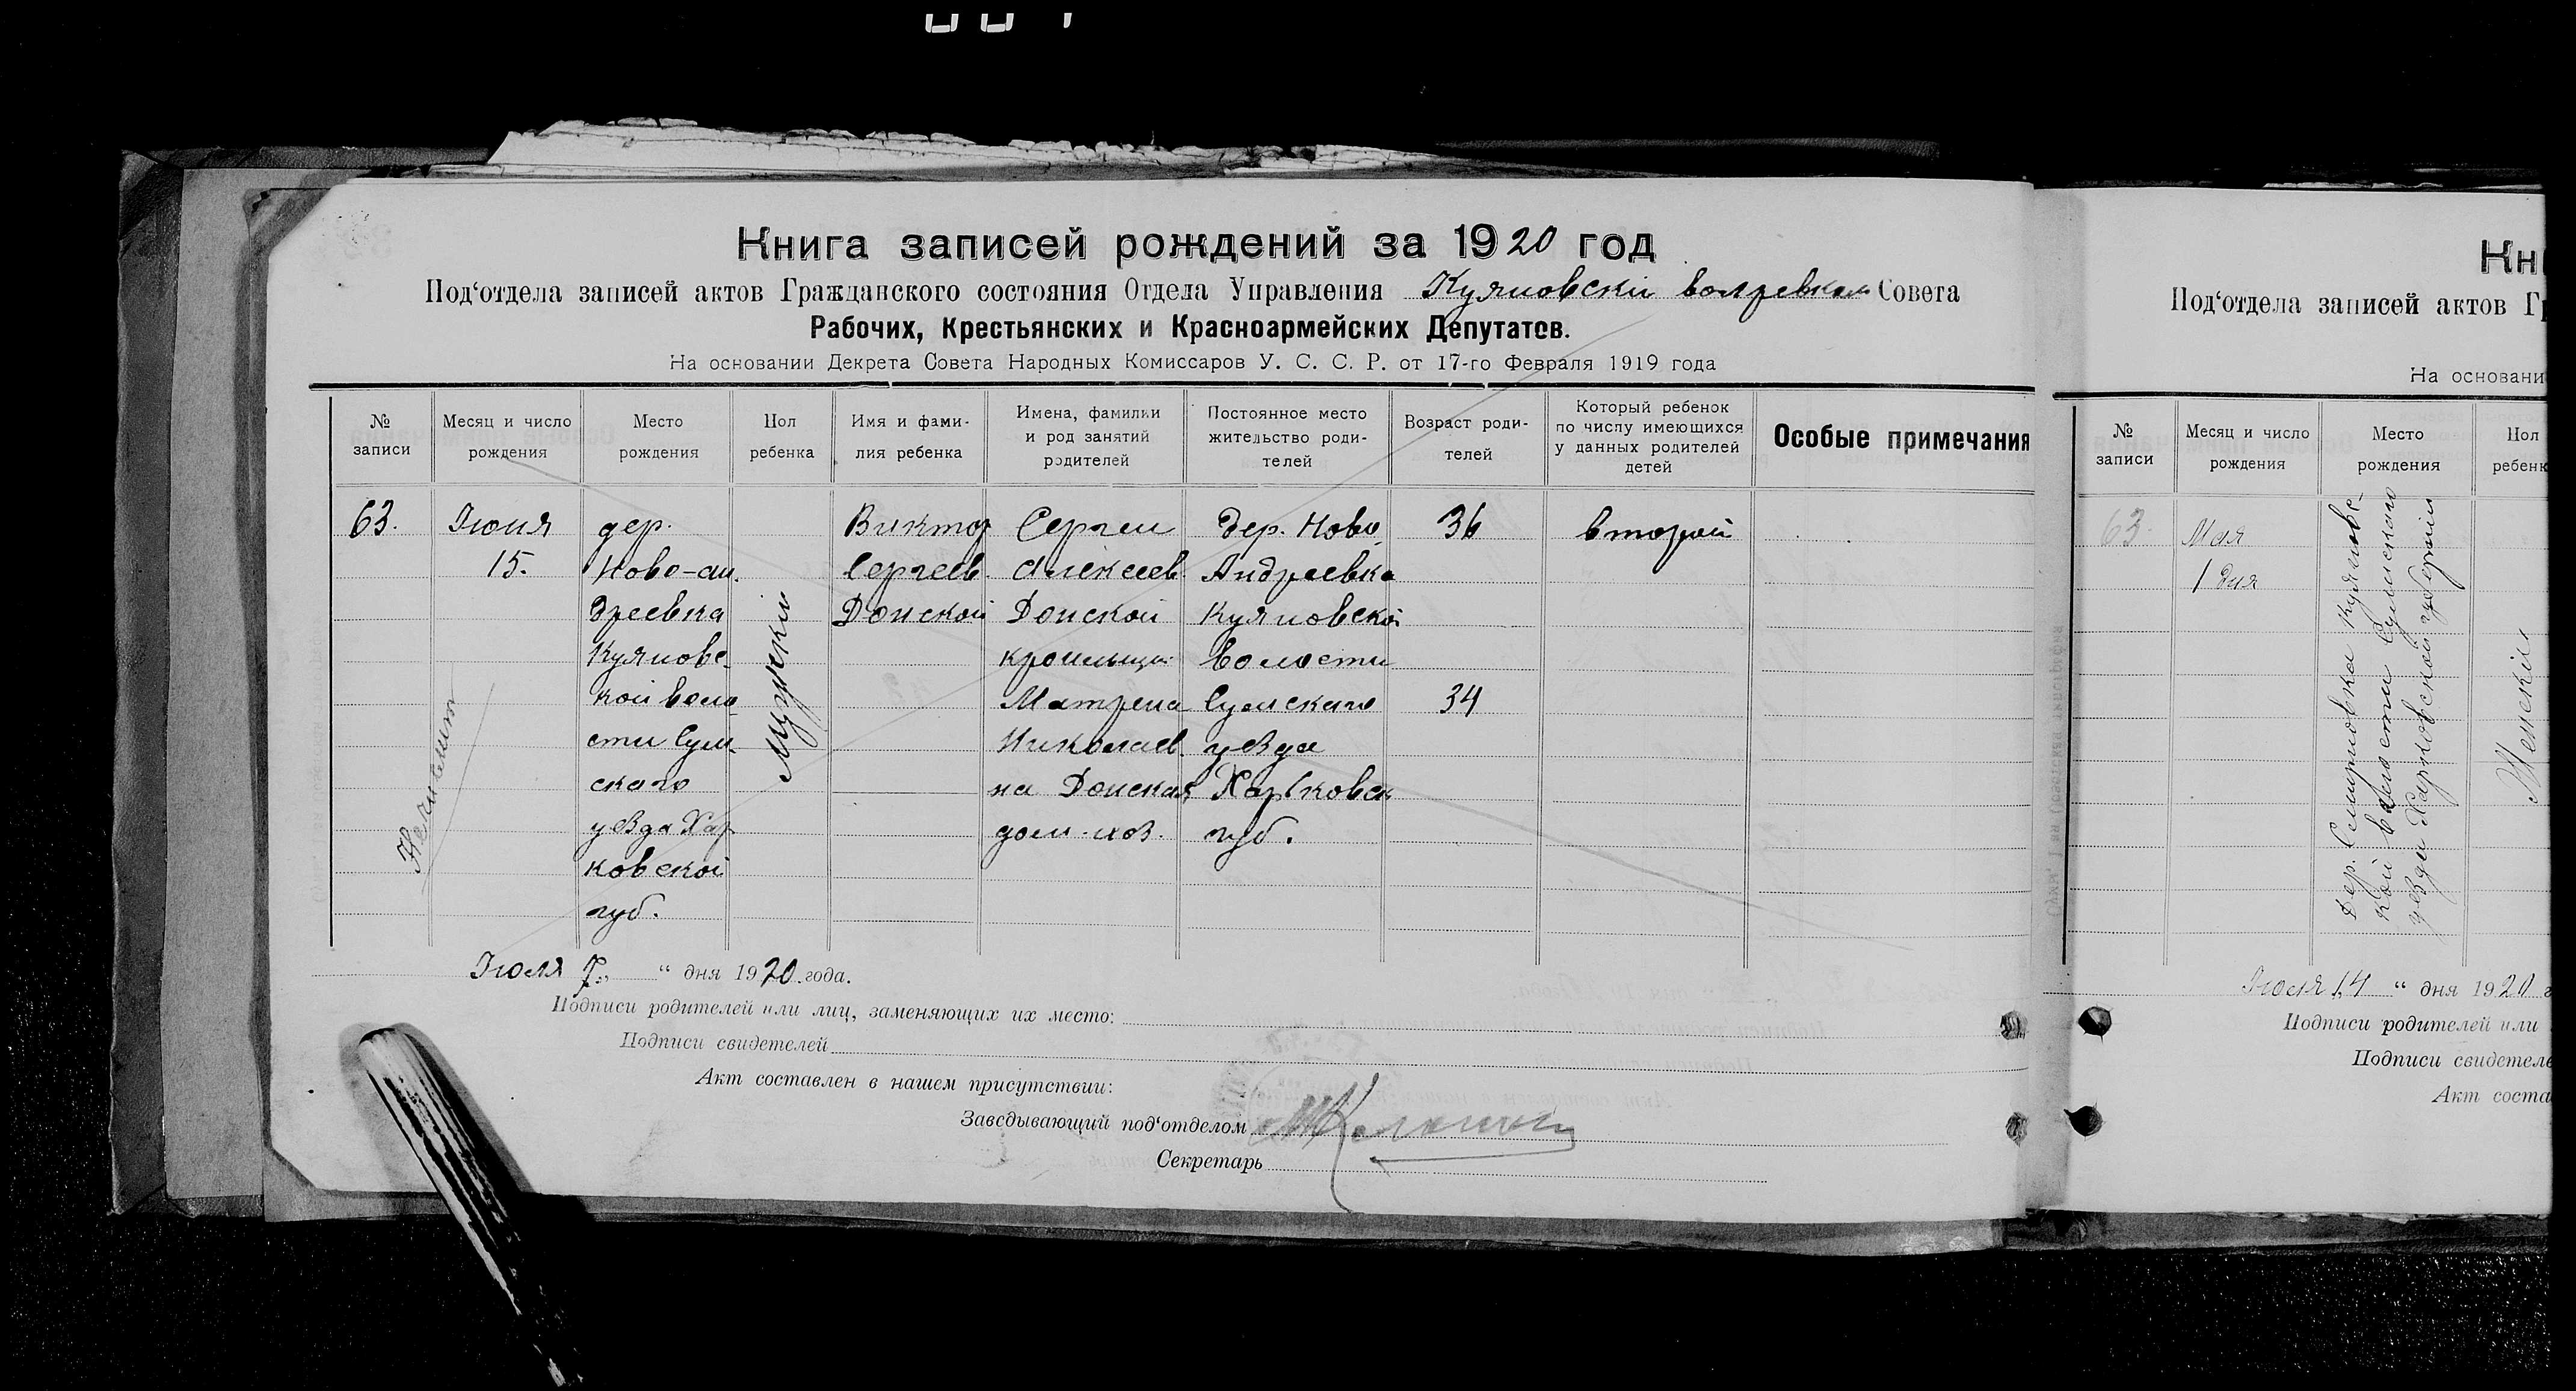 Книга записей рождений за 1920 год
Под‘отдела записей актов Гражданского состояния Отдела Управления Куяновскій волревком Совета
Рабочих, Крестьянских и Красноармейских Депутатов.
На основании Декрета Совета Народных Комиссаров У. С. С. Р. от 17-го Февраля 1919 года
№ записи
Месяц и число рождения
Место рождения
Пол ребенка
Имя и фами-
лия ребенка
Имена, фамилии
и род занятий
родителей
Постоянное место
жительство роди-
телей
Возраст роди-
телей
Который ребенок
по числу имеющихся
у данных родителей
детей
Особые примечания
63.
Июня
15.
дер.
Ново-ан.
дреевка
Куяновс-
кой воло-
сти Сум-
скаго
уезда Хар
ковской
губ.
мужскій
Виктор
Сергеев.
Донской
Сергей
Алексеев.
Донской
Матрена
Николаев.
на Донская
дом-хоз.
Дер. Ново
Андреевка
Куяновской
волости
Сумскаго
уезда
Харковск
губ.
36
34
второй
Июля 7 “ дня 1920 года.
Подписи родителей или лиц, заменяющих их место:
Подписи свидетелей
Акт составлен в нашем присутствии:
Заведывающий под‘отделом
Секретарь
Кн
Под‘отдела записей актов Г
На основани
№ записи
Месяц и число рождения
Место рождения
Пол
ребенк
63.
Мая
1 дня
Дер. Смирновка Куяновс-
кой волости Сумскаго
уезда Харковской губерніи
Женскій
Июля 14 “ дня 1920 г
Подписи родителей или
Подписи свидетеле
Акт соста